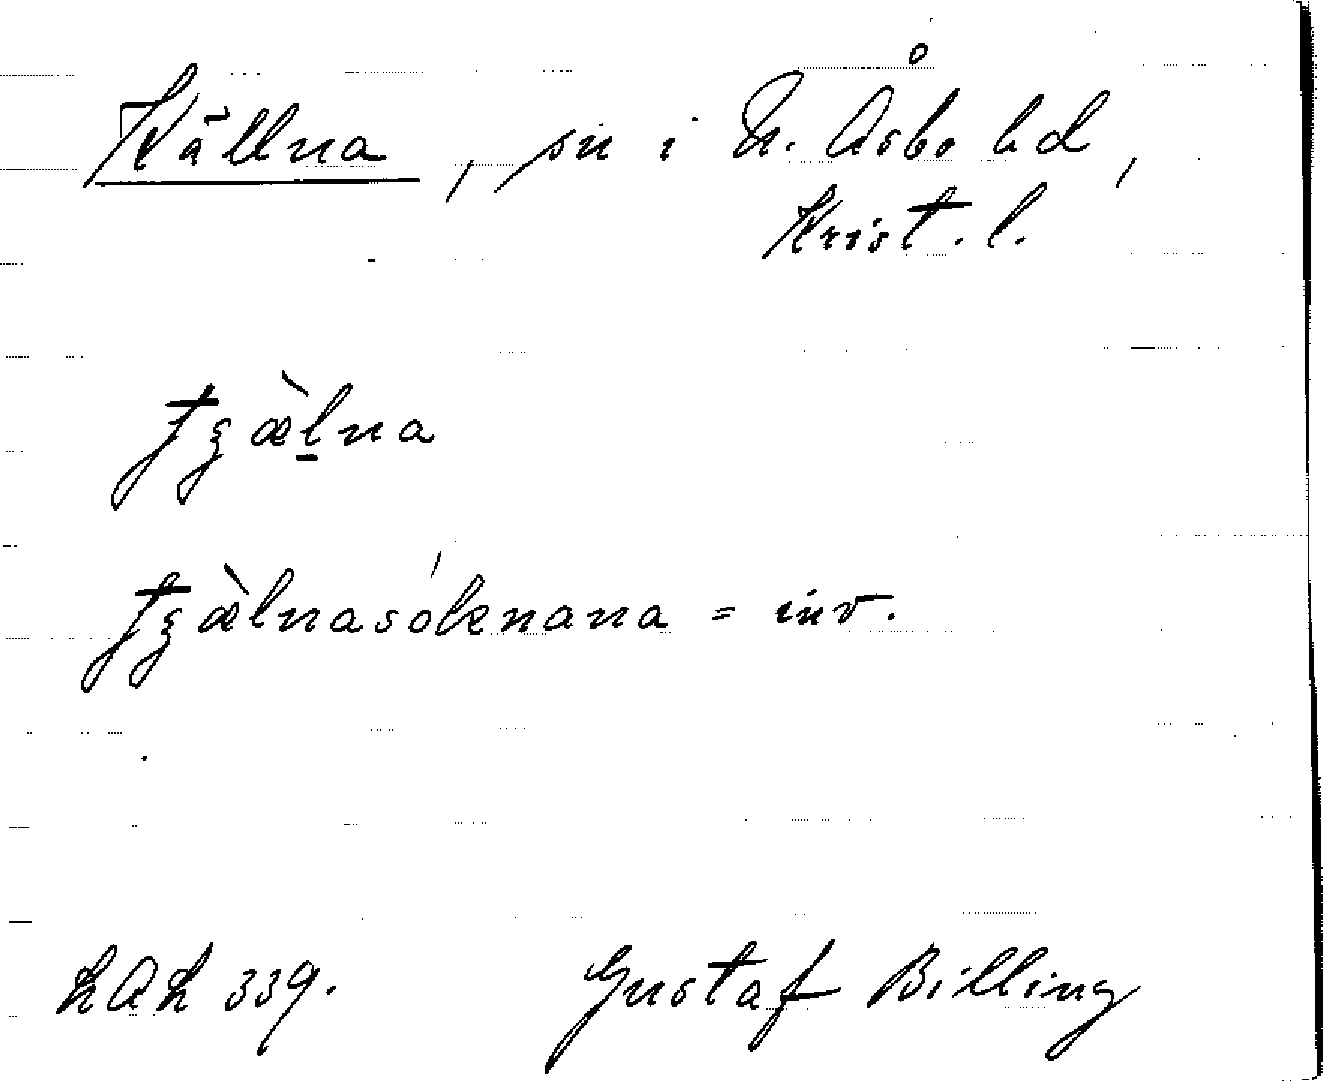 Källna, sn i N. Åsbo hd,
Krist. l.
tʒæ̀l̲na
tʒæ̀lnasóknana = inv.
LAL 339. Gustaf Billing